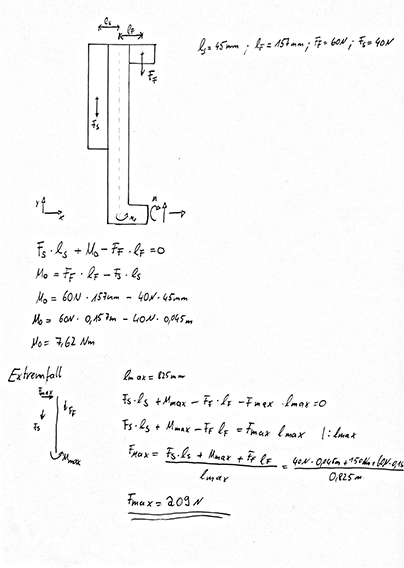 lₛ l_F
lₛ = 45mm ; l_F = 157mm ; F_F = 60N ; Fₛ = 40N
F_F
Fₛ
y
x
M
M₀
Fₛ · lₛ + M₀ - F_F · l_F = 0
M₀ = F_F · l_F - Fₛ · lₛ
M₀ = 60N · 157mm - 40N · 45mm
M₀ = 60N · 0,157m - 40N · 0,045m
M₀ = 7,62 Nm
Extremfall
Fmax
F_F
Fₛ
Mmax
lmax = 825mm
Fₛ · lₛ + Mmax - F_F · l_F - Fmax · lmax = 0
Fₛ · lₛ + Mmax - F_F l_F = Fmax lmax |: lmax
Fmax = (Fₛ · lₛ + Mmax + F_F l_F) / lmax = (40N · 0,045m + 150Nm + 60N · 0,15) / 0,825m
Fmax = 209 N